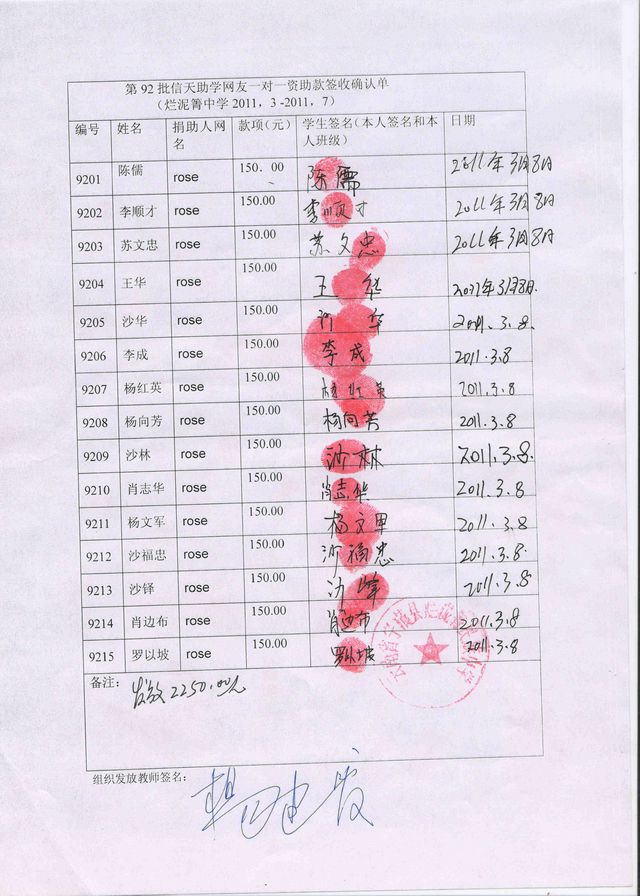 第 92 批信天助学网友一对一资助款签收确认单
（烂泥箐中学 2011，3 -2011，7）
编号 姓名 捐助人网名 款项（元） 学生签名（本人签名和本人班级） 日期
9201 陈儒 rose 150.00 陈儒 2011年3月8日
9202 李顺才 rose 150.00 李顺才 2011年3月8日
9203 苏文忠 rose 150.00 苏文忠 2011年3月8日
9204 王华 rose 150.00 王华 2011年3月8日
9205 沙华 rose 150.00 沙华 2011.3.8
9206 李成 rose 150.00 李成 2011.3.8
9207 杨红英 rose 150.00 杨红英 2011.3.8
9208 杨向芳 rose 150.00 杨向芳 2011.3.8
9209 沙林 rose 150.00 沙林 2011.3.8
9210 肖志华 rose 150.00 肖志华 2011.3.8
9211 杨文军 rose 150.00 杨文军 2011.3.8
9212 沙福忠 rose 150.00 沙福忠 2011.3.8
9213 沙铎 rose 150.00 沙 2011.3.8
9214 肖边布 rose 150.00 肖边布 2011.3.8
9215 罗以坡 rose 150.00 罗以坡 2011.3.8
备注： 发放2250.00元
组织发放教师签名：